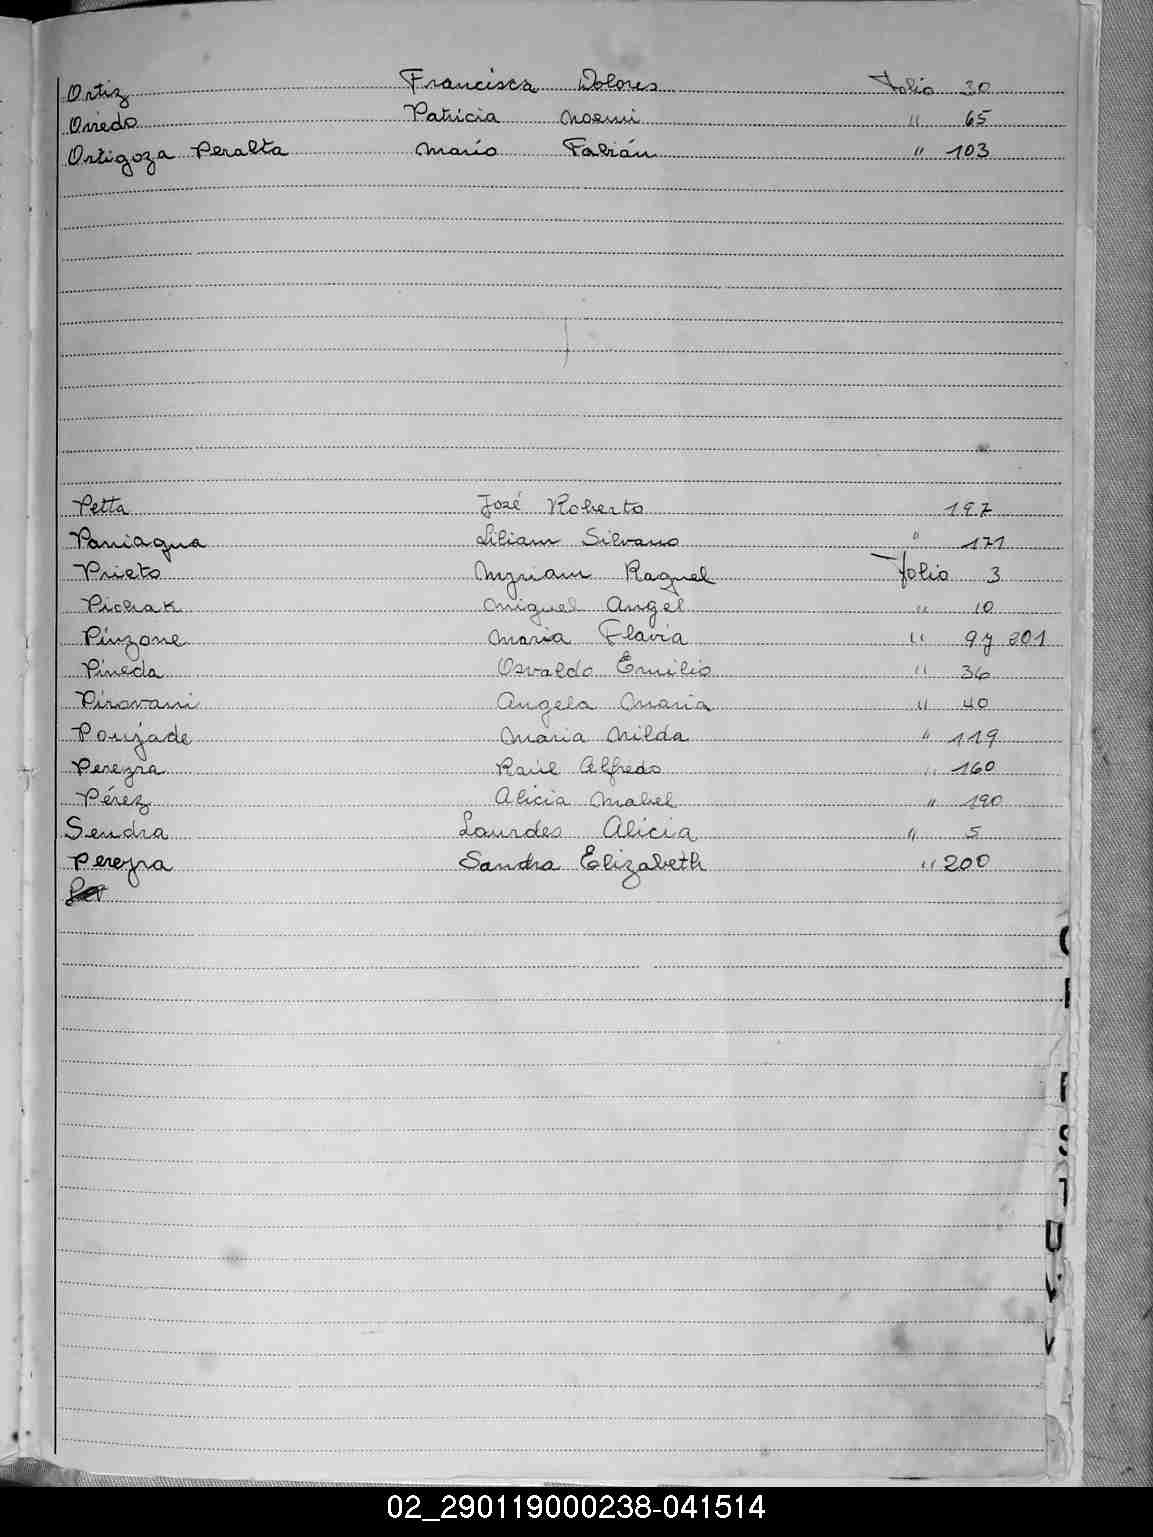 Ortiz Francisca Dolores Folio 30
Oviedo Patricia Noemi " 65
Ortigoza Peralta Mario Fabián " 103
Petta José Roberto 197
Paniagua Liliam Silvano " 171
Prieto Myriam Raquel folio 3
Pichak Miguel Angel " 10
Pinzone Maria Flavia " 9 y 201
Pineda Osvaldo Emilio " 36
Pirovani Angela Maria " 40
Poujade Maria Nilda " 119
Pereyra Raúl Alfredo " 160
Pérez Alicia Mabel " 190
Sendra Lourdes Alicia " 5
Pereyra Sandra Elizabeth " 200
S
T
U
V
02_290119000238-041514